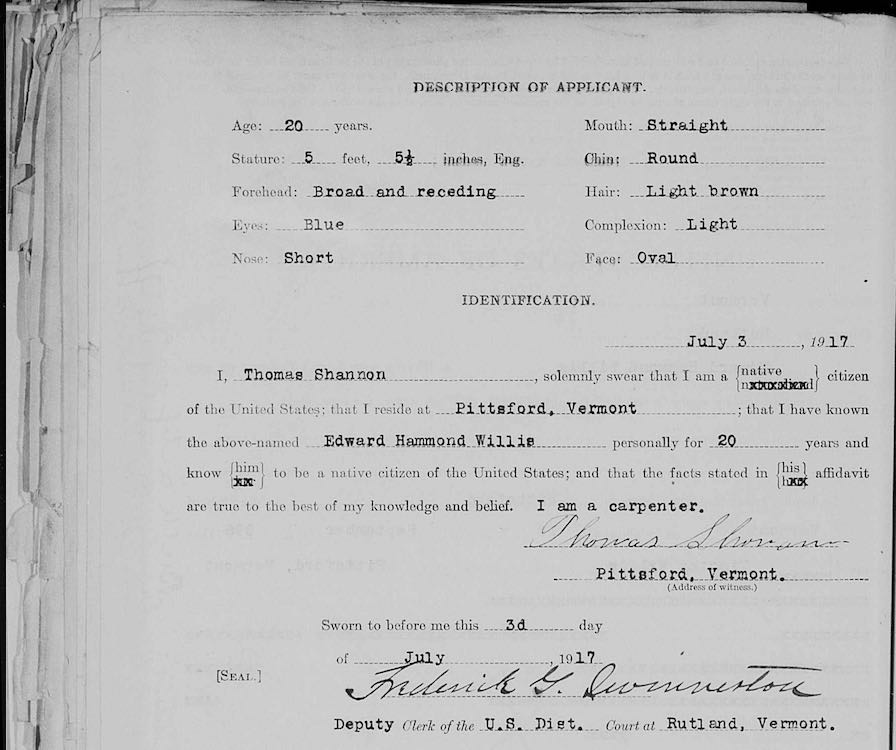 DESCRIPTION OF APPLICANT.
Age: 20 years.
Mouth: Straight
Stature: 5 feet, 5½ inches, Eng.
Chin: Round
Forehead: Broad and receding
Hair: Light brown
Eyes: Blue
Complexion: Light
Nose: Short
Face: Oval
IDENTIFICATION.
July 3, 1917
I, Thomas Shannon, solemnly swear that I am a {native} citizen
of the United States; that I reside at Pittsford, Vermont; that I have known
the above-named Edward Hammond Willis personally for 20 years and
know {him} to be a native citizen of the United States; and that the facts stated in {his} affidavit
are true to the best of my knowledge and belief. I am a carpenter.
Thomas Shannon
Pittsford, Vermont.
(Address of witness.)
Sworn to before me this 3d day
of July, 1917
[SEAL.]
Frederick G.
Deputy Clerk of the U.S. Dist. Court at Rutland, Vermont.